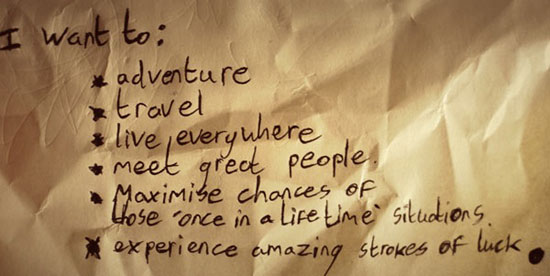 I want to:
* adventure
* travel
* live everywhere
* meet great people.
* Maximise chances of
those 'once in a lifetime' situations.
* experience amazing strokes of luck.